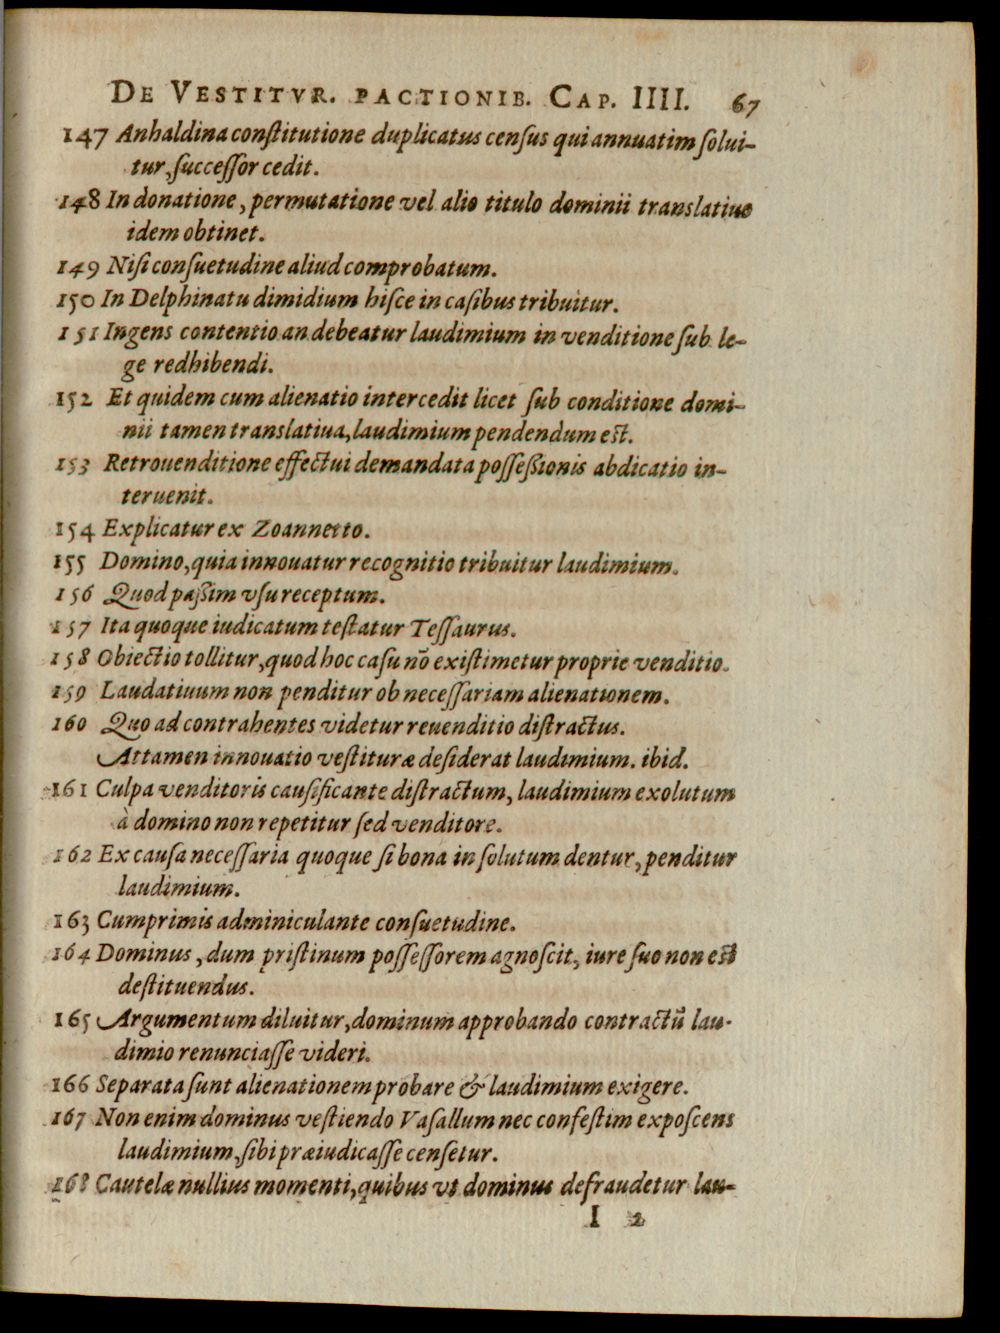 DE VESTITVR. PACTIONIB. CAP. IIII. 67
147 Anhaldina conſtitutione duplicatus cenſus qui annuatim ſolui-
tur, ſucceſſor cedit.
148 In donatione, permutatione vel alio titulo dominii translatiuo
idem obtinet.
149 Niſi conſuetudine aliud comprobatum.
150 In Delphinatu dimidium hiſce in caſibus tribuitur.
151 Ingens contentio an debeatur laudimium in venditione ſub le-
ge redhibendi.
152 Et quidem cum alienatio intercedit licet ſub conditione domi-
nii tamen translatiua, laudimium pendendum eſt.
153 Retrouenditione effectui demandata poſſeſſionis abdicatio in-
teruenit.
154 Explicatur ex Zoannetto.
155 Domino, quia innouatur recognitio tribuitur laudimium.
156 Quod paßim vſu receptum.
157 Ita quoque iudicatum teſtatur Teſſaurus.
158 Obiectio tollitur, quod hoc caſu nō exiſtimetur proprie venditio.
159 Laudatiuum non penditur ob neceſſariam alienationem.
160 Quo ad contrahentes videtur reuenditio diſtractus.
Attamen innouatio veſtituræ deſiderat laudimium. ibid.
161 Culpa venditoris cauſificante diſtractum, laudimium exolutum
à domino non repetitur ſed venditore.
162 Ex cauſa neceſſaria quoque ſi bona in ſolutum dentur, penditur
laudimium.
163 Cumprimis adminiculante conſuetudine.
164 Dominus, dum priſtinum poſſeſſorem agnoſcit, iure ſuo non eſt
deſtituendus.
165 Argumentum diluitur, dominum approbando contractū lau-
dimio renunciaſſe videri.
166 Separata ſunt alienationem probare & laudimium exigere.
167 Non enim dominus veſtiendo Vaſallum nec confeſtim expoſcens
laudimium, ſibi præiudicaſſe cenſetur.
168 Cautelæ nullius momenti, quibus vt dominus defraudetur lau-
I 2